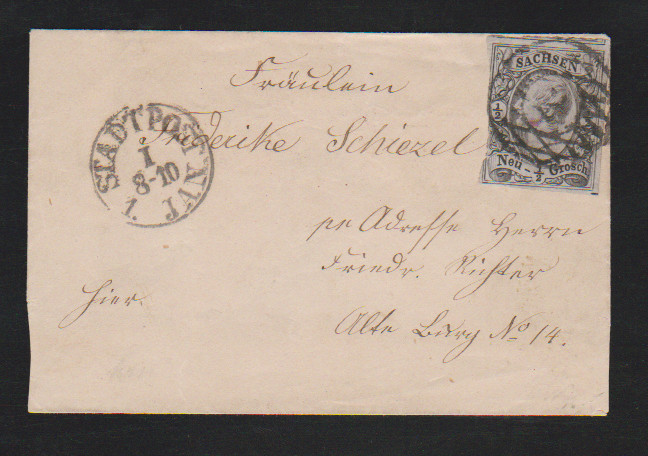 SACHSEN
1/2
Neu - 1/2 Grosch
STADTPOST
I
8-10
1. JAN
Fräulein
Friederike Schiezel
pr Adresse Herrn
Friedr. Richter
hier.
Alte Burg No 14.